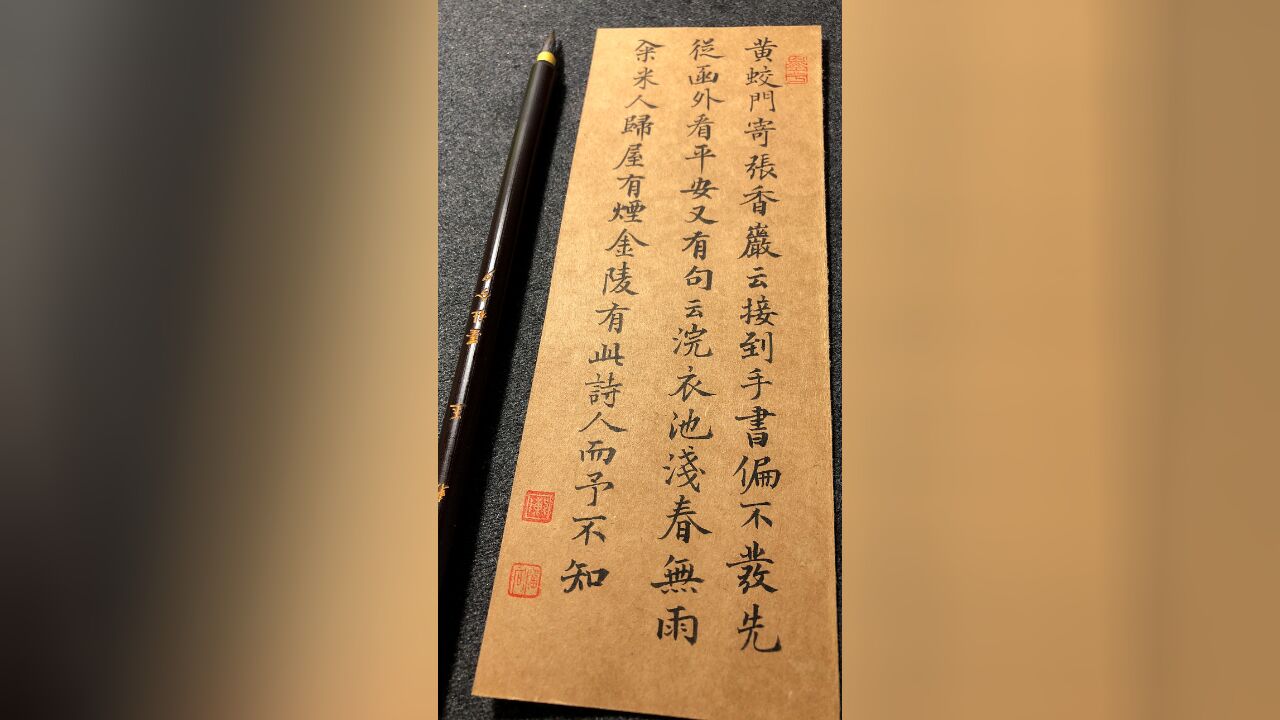 黄蛟門寄張香巖云接到手書偏不發先
從函外看平安又有句云浣衣池淺春無雨
籴米人歸屋有煙金陵有此詩人而予不知